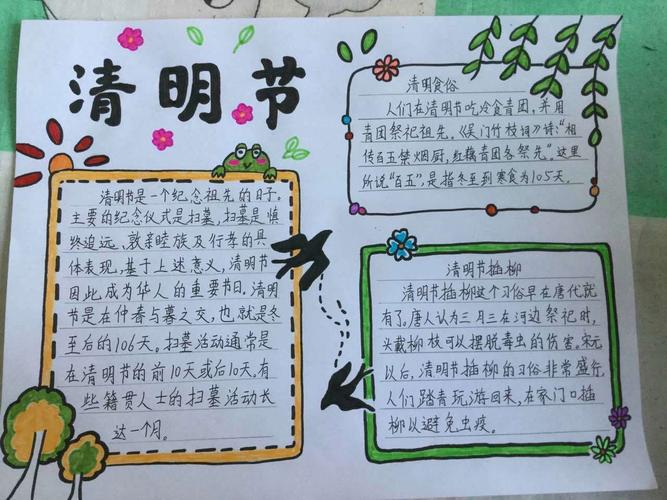 清明节
清明节是一个纪念祖先的日子。
主要的纪念仪式是扫墓,扫墓是慎
终追远、敦亲睦族及行孝的具
体表现,基于上述意义,清明节
因此成为华人的重要节日。清明
节是在仲春与暮之交,也就是冬
至后的106天。扫墓活动通常是
在清明节的前10天或后10天,有
些籍贯人士的扫墓活动长
达一个月。
清明食俗
人们在清明节吃冷食青团,并用
青团祭祀祖先,《吴门竹枝词》诗:“相
传百五禁烟厨,红藕青团各祭先”。这里
所说“百五”,是指冬至到寒食为105天。
清明节插柳
清明节插柳这个习俗早在唐代就
有了。唐人认为三月三在河边祭祀时,
头戴柳枝可以摆脱毒虫的伤害。宋元
以后,清明节插柳的习俗非常盛行,
人们踏青玩游回来,在家门口插
柳以避免虫疫。